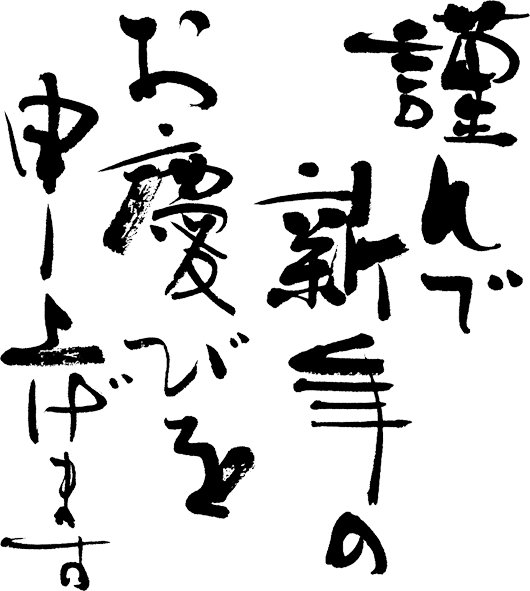 謹んで
新年の
お慶びを
申し上げます